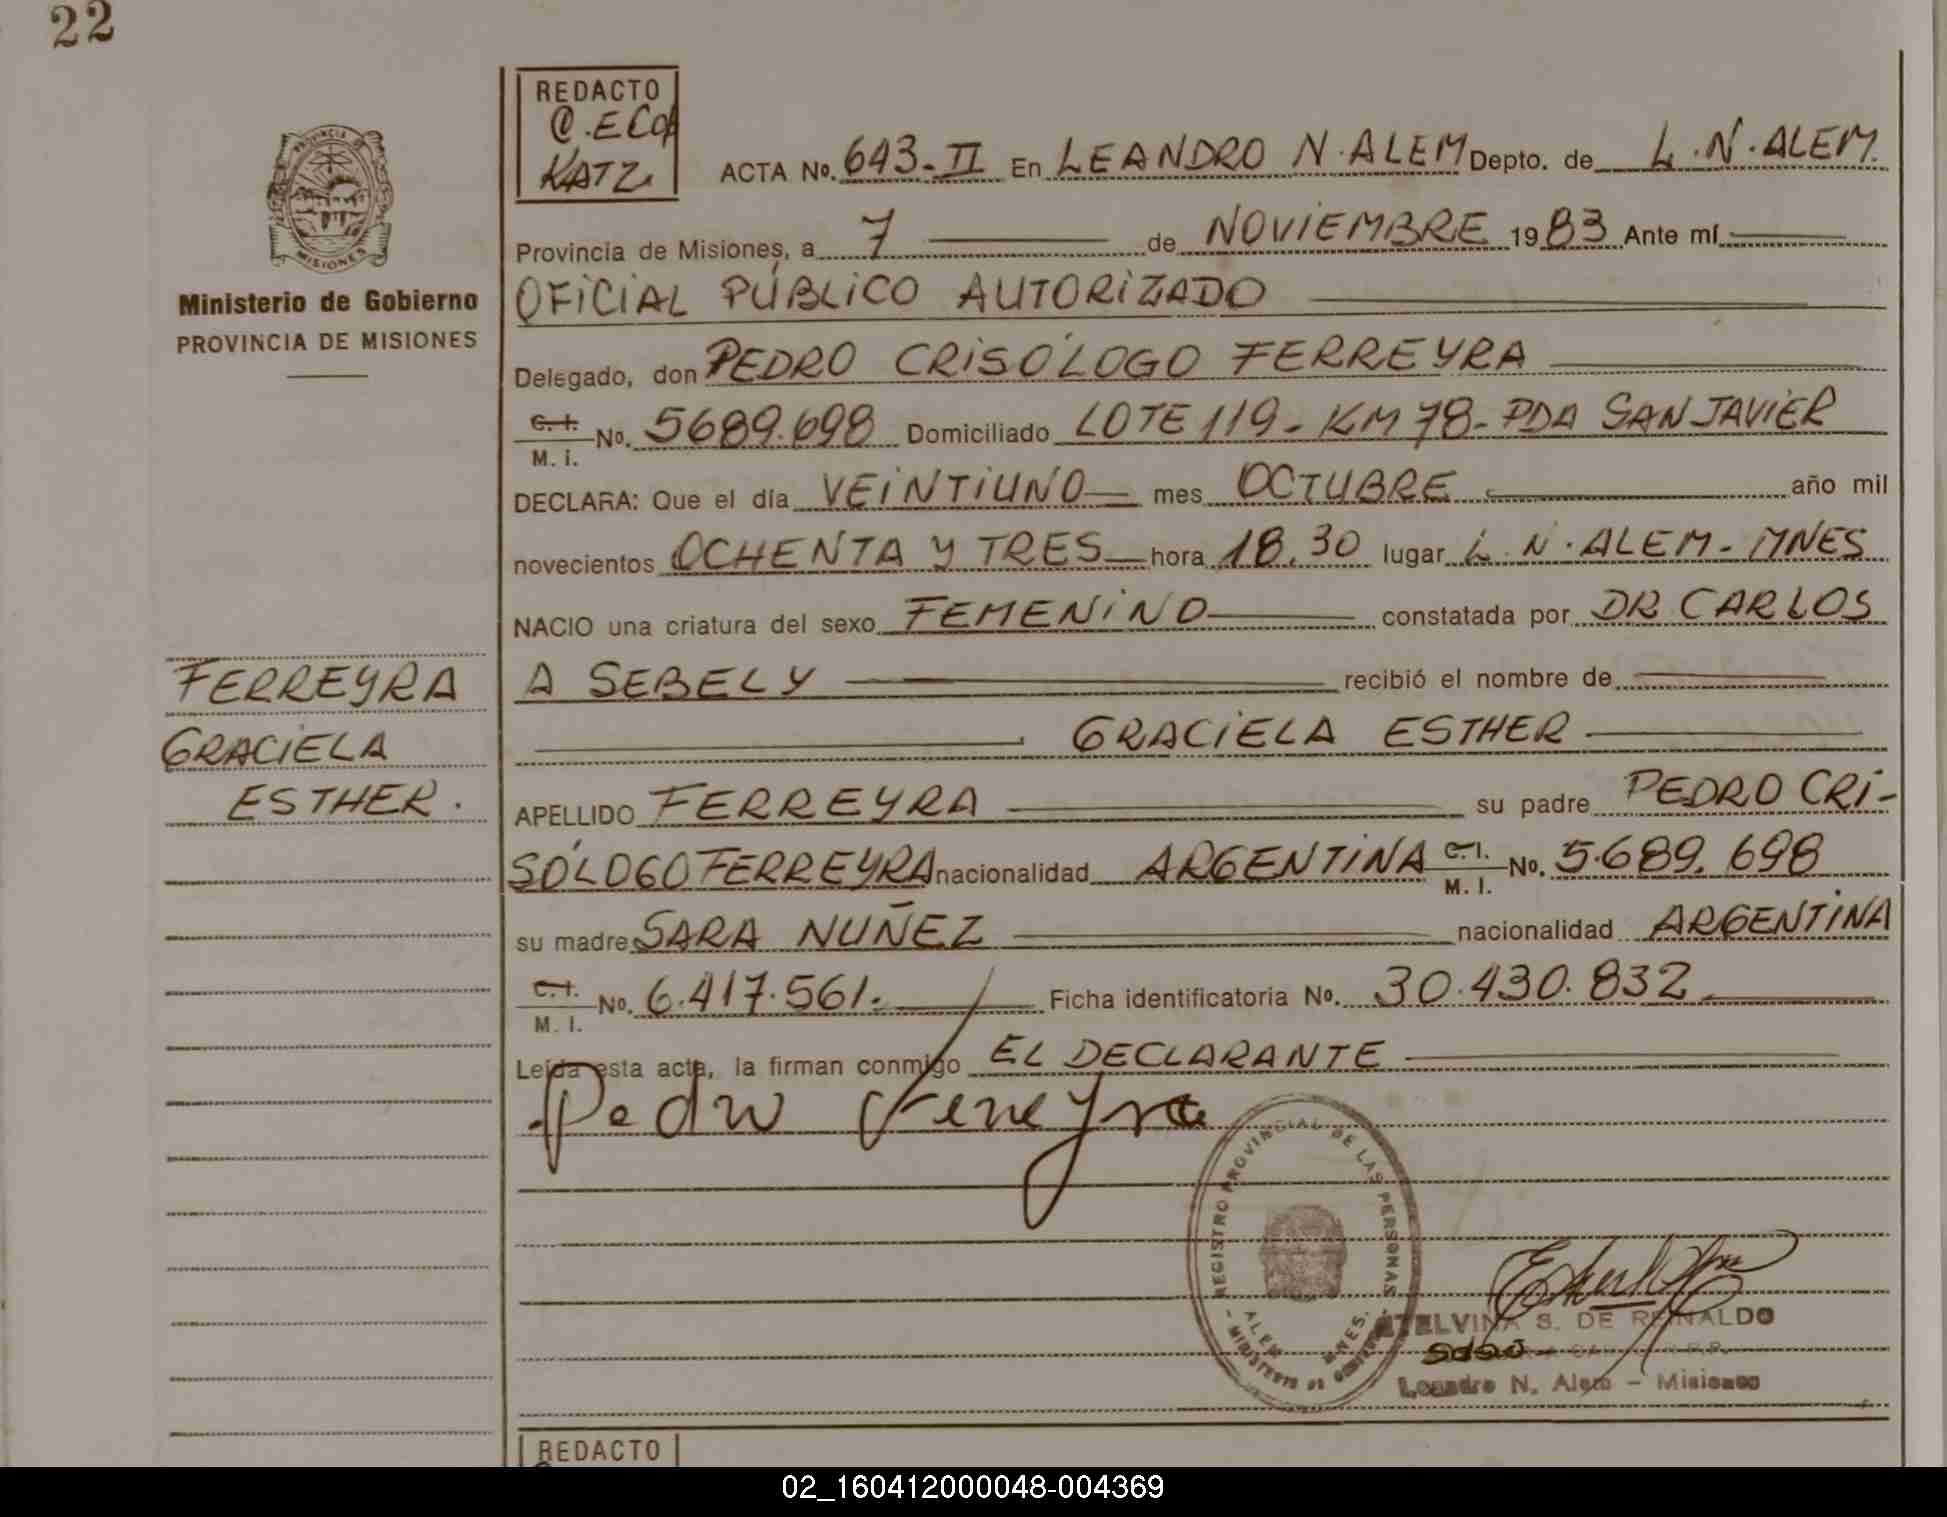 22
REDACTO
C.ECof
KATZ
ACTA No. 643-II En LEANDRO N. ALEM Depto. de L.N.ALEM.
PROVINCIA DE
MISIONES
Provincia de Misiones, a 7 de NOVIEMBRE 1983 Ante mí
Ministerio de Gobierno
PROVINCIA DE MISIONES
OFICIAL PÚBLICO AUTORIZADO
Delegado, don PEDRO CRISÓLOGO FERREYRA
C.I.
M. I. No. 5689.698 Domiciliado LOTE 119- KM 78- PDA SAN JAVIER
DECLARA: Que el día VEINTIUNO mes OCTUBRE año mil
novecientos OCHENTA Y TRES hora 18.30 lugar L.N.ALEM-MNES
NACIO una criatura del sexo FEMENINO constatada por DR CARLOS
A SEBELY recibió el nombre de
GRACIELA ESTHER
FERREYRA
GRACIELA
ESTHER.
APELLIDO FERREYRA su padre PEDRO CRI-
SÓLOGO FERREYRA nacionalidad ARGENTINA C.I.
M. I. No. 5.689.698
su madre SARA NUÑEZ nacionalidad ARGENTINA
C.I.
M. I. No. 6.417.561. Ficha identificatoria No. 30.430.832
Leída esta acta, la firman conmigo EL DECLARANTE
Pedro Ferreyra
REGISTRO PROVINCIAL DE LAS PERSONAS
ALEM MNES.
- MINISTERIO DE GOBIERNO -
ETELVINA S. DE REINALDO
Leandro N. Alem - Misiones
REDACTO
02_160412000048-004369